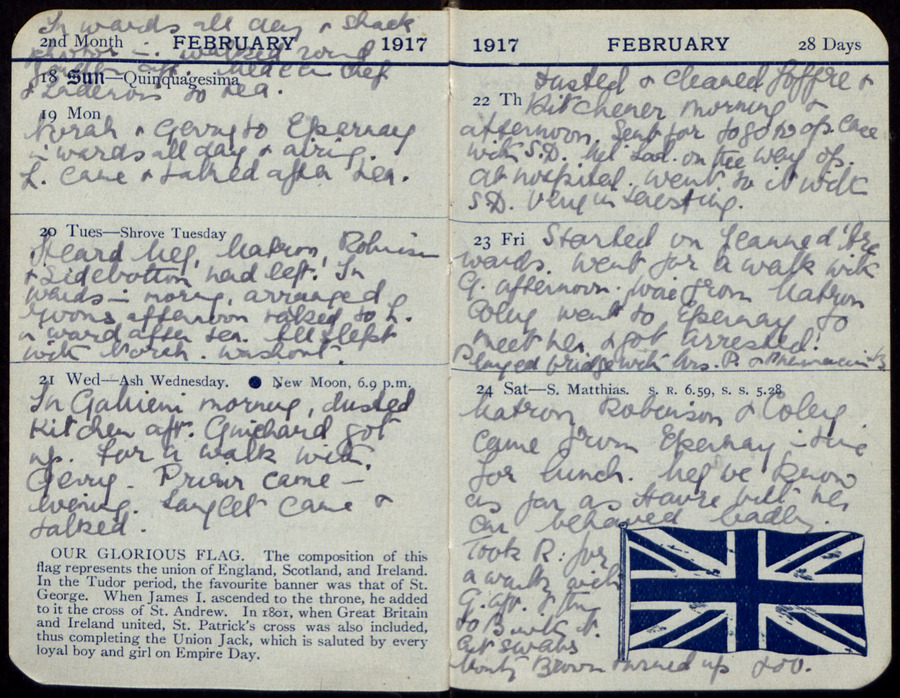 In wards all day & Shack
2nd Month FEBRUARY 1917
walked round
18 Sun—Quinquagesima
to tea.
19 Mon
Norah & Gerry to Epernay
in wards all day & airing.
L. came & talked after tea.
20 Tues—Shrove Tuesday
Heard Meg, Matron, Robinson
& Sidebottom had left. In
wards in morng, arranged
afternoon talked to L.
in ward after tea. slept
with Norah.
21 Wed—Ash Wednesday. ● New Moon, 6.9 p.m.
In Galieni morning, dusted
Kitchen aft. Guichard got
up. For a walk with
Gerry. Prieur came in
evening. came &
talked.
OUR GLORIOUS FLAG. The composition of this
flag represents the union of England, Scotland, and Ireland.
In the Tudor period, the favourite banner was that of St.
George. When James I. ascended to the throne, he added
to it the cross of St. Andrew. In 1801, when Great Britain
and Ireland united, St. Patrick's cross was also included,
thus completing the Union Jack, which is saluted by every
loyal boy and girl on Empire Day.
1917 FEBRUARY 28 Days
Dusted & cleaned Joffre &
22 Th Kitchener morning &
afternoon, Sent for to go to op. case
with S.D. on the way op.
at hospital. Went to it with
S.D. Very interesting.
23 Fri Started on Jeanne d'Arc
wards. Went for a walk with
G. afternoon. wire from Matron
Coley went to Epernay to
meet her & got arrested!
Played bridge with Mrs. P. &
24 Sat—S. Matthias. S. R. 6.59, S. S. 5.28
Matron Robinson & Coley
came from Epernay in time
for lunch. Meg we know
as far as Havre with her
car behaved badly.
Took R. for
a walk with
G. aft.
to
Cut swabs
Monty Brown turned up too.